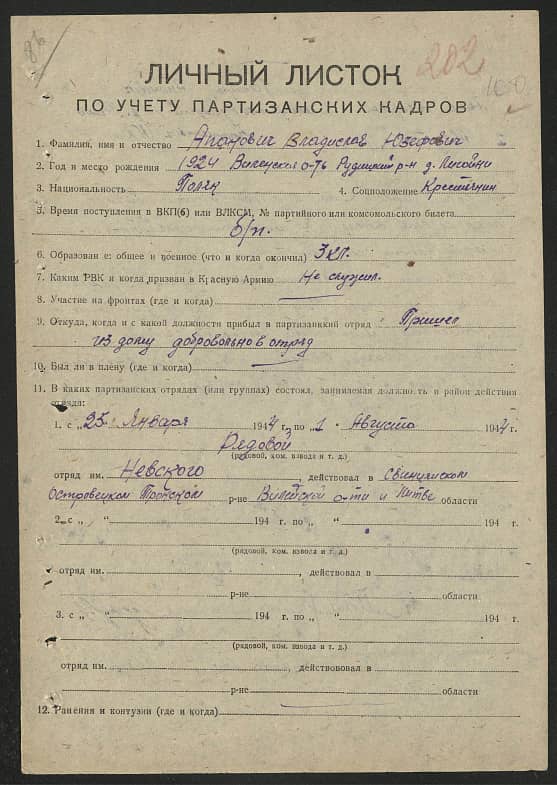 86
202
100
ЛИЧНЫЙ ЛИСТОК
ПО УЧЕТУ ПАРТИЗАНСКИХ КАДРОВ
1. Фамилия, имя и отчество Апанович Владислав Юзефович
2. Год и место рождения 1924 Виленская о-ть р-н д.
3. Национальность Поляк 4. Соцположение Крестьянин
5. Время поступления в ВКП(б) или ВЛКСМ, № партийного или комсомольского билета
б/п.
6. Образован е: общее и военное (что и когда окончил) 3 кл.
7. Каким РВК и когда призван в Красную Армию Не служил.
8. Участие на фронтах (где и когда)
9. Откуда, когда и с какой должности прибыл в партизанский отряд Пришел
из дому добровольно в отряд
10. Был ли в плену (где и когда)
11. В каких партизанских отрядах (или группах) состоял, занимаемая должность и район действия
отряда:
1. с „25" Января 1944 г. по „1" Августа 1944 г.
Рядовой
(рядовой, ком. взвода и т. д.)
отряд им. Невского, действовал в Свирском
Островецком р-не Вилейской о-ти и Литве области
2. с „ " 194 г. по „ " 194 г.
(рядовой, ком. взвода и т. д.)
отряд им. , действовал в
р-не области
3. с „ " 194 г. по „ " 194 г.
(рядовой, ком. взвода и т. д.)
отряд им. , действовал в
р-не области
12. Ранения и контузии (где и когда)